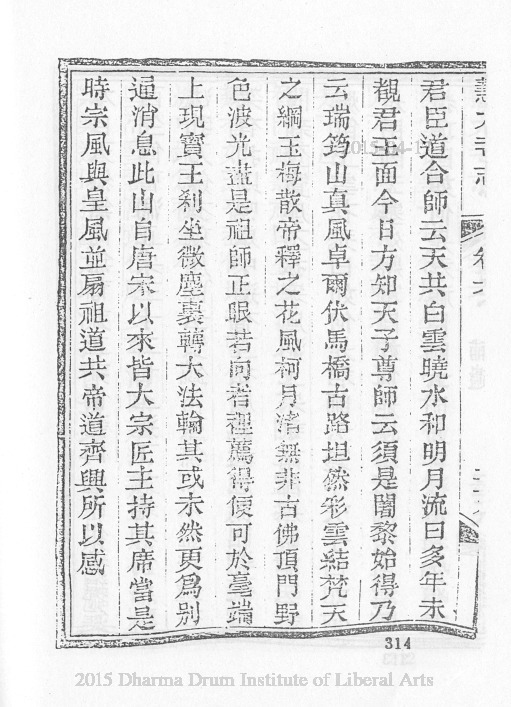 君臣道合師云天共白雲曉水和明月流曰多年未
覩君王面今日方知天子尊師云須是闍黎始得乃
云瑞筠山真風卓爾伏馬橋古路坦然彩雲結梵天
之綱玉梅散帝釋之花風柯月渚無非古佛頂門野
色波光盡是祖師正眼若向者裡薦得便可於毫端
上現寶王剎坐微塵裏轉大法輪其或未然更為別
通消息此山自唐宋以來皆大宗匠主持其席當是
時宗風與皇風並扇祖道共帝道齊興所以感
314
2015 Dharma Drum Institute of Liberal Arts